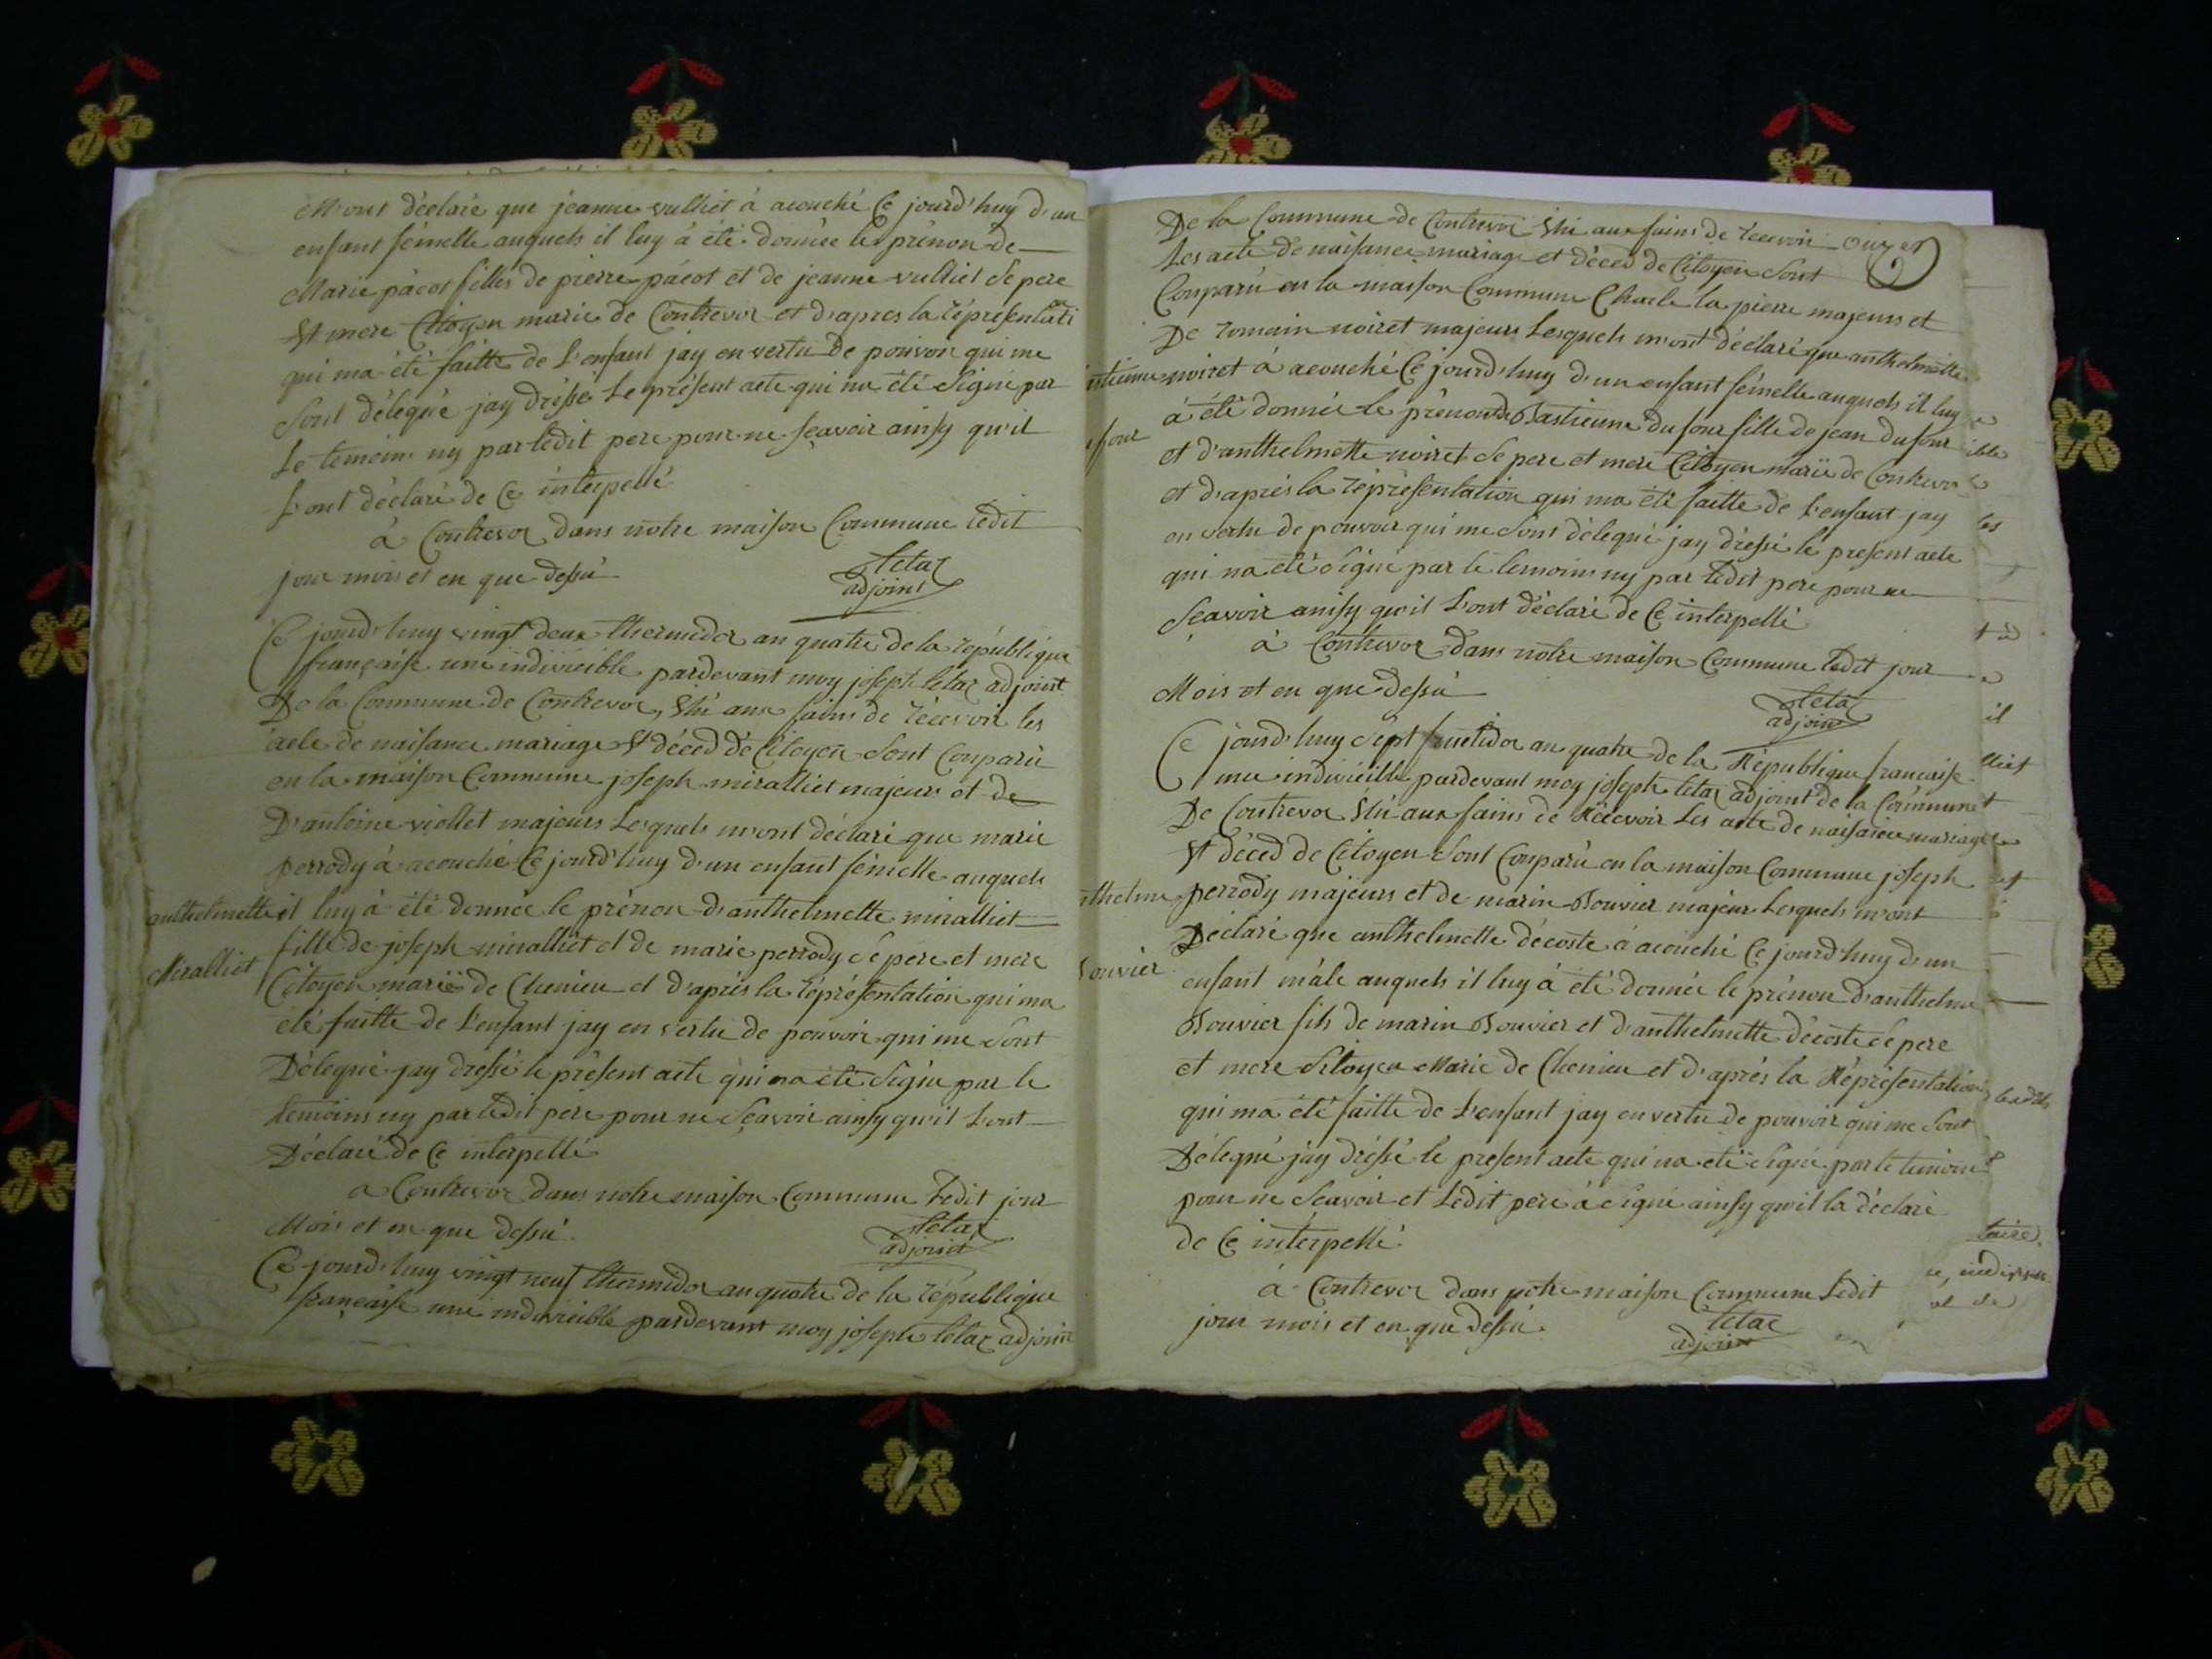 M'ont déclaré que jeanne vulliet à acouché Ce jourd'huy d'un
enfant fémelle auquels il luy à été donnée le prénon de
Marie pacot filles de pierre pacot et de jeanne vulliet Se pere
Et mere Citoyen marié de Contrevor et d'apres la réprésentati
qui ma été faitte de L'enfant jay en vertu de pouvoir qui me
Sont délégué jay dréssé Le présent acte qui na été Signé par
Le temoins ny par ledit pere pour ne sçavoir ainsy qu'il
L'ont déclaré de Ce interpellé
à Contrevor dans notre maison Commune ledit
jour mois et en que dessu
tetaz
adjoint
Ce jourd'huy vingt deux thermidor an quatre de la république
française une indivicible pardevant moy joseph tetaz adjoint
De la Commune de Contrevor, Elu aux fains de récevoir les
acte de naisance mariage Et déced de Citoyen Sont Conparu
en la maison Commune joseph miralliet majeurs et de
D'antoine viollet majeurs Lesquels m'ont déclaré que marie
perrody à acouché Ce jourd'huy d'un enfant fémelle auquels
anthelmette
Miralliet
il luy à été donnée le prénon d'anthelmette miralliet
fille de joseph miralliet et de marie perrody cé pere et mere
Citoyen marié de Chemieu et d'aprés la réprésentation qui ma
été faitte de L'enfant jay en vertu de pouvoir qui me Sont
Délégué jay dressé le présent acte qui na été Signé par le
temoins ny par ledit pere pour ne Sçavoir ainsy qu'il L'ont
Déclaré de Ce interpellé
a Contrevor dans notre maison Commune Ledit jour
Mois et en que dessu
tetaz
adjoint
Ce jourd'huy vingt neuf thermidor an quatre de la république
française une indivicible pardevant moy joseph tetaz adjoint
De la Commune de Contrevor Elu aux fains de recevoir
Les acte de naisance mariage et déced de Citoyen Sont
Conparu en la maison Commune Charle la pierre majeurs et
De romain noiret majeurs Lesquels m'ont déclaré que anthelmette
noiret à acouché Ce jourd'huy d'un enfant fémelle auquels il luy
à été donnée le prénon de Bastienne dufour fille de jean dufour
et d'anthelmette noiret Se pere et mere Citoyen marié de Contrevo
et d'aprés la réprésentation qui ma été faitte de L'enfant jay
en vertu de pouvoir qui me Sont délégué jay dressé le present acte
qui na été Signé par le temoins ny par ledit pere pour ne
Sçavoir ainsy qu'il L'ont déclaré de Ce interpellé
à Contrevor dans notre maison Commune ledit jour
Mois et en que dessu
tetaz
adjoint
Ce jourd'huy Sept fructidor an quatre de la République française
une indivicible pardevant moy joseph tetaz adjoint de la Commune
De Contrevor Elu aux fains de Récevoir Les acte de naisance mariage
Et déced de Citoyen Sont Conparu en la maison Commune joseph
perrody majeurs et de marin Bouvier majeur Lesquels m'ont
Déclaré que anthelmette décoste à acouché Ce jourd'huy d'un
enfant mâle auquels il luy à été donnée le prénon d'anthelme
Bouvier fils de marin Bouvier et d'anthelmette décoste cé pere
et mere Sitoyen Marié de Chemieu et d'aprés la Réprésentation
qui ma été faitte de L'enfant jay en vertu de pouvoir qui me Sont
Délégué jay dréssé le present acte qui na été Signé par le temoins
pour ne Sçavoir et Ledit pere à cigné ainsy qu'il la déclaré
de Ce interpellé
à Contrevor dans notre maison Commune Ledit
jour mois et en que dessu
tetaz
adjoint